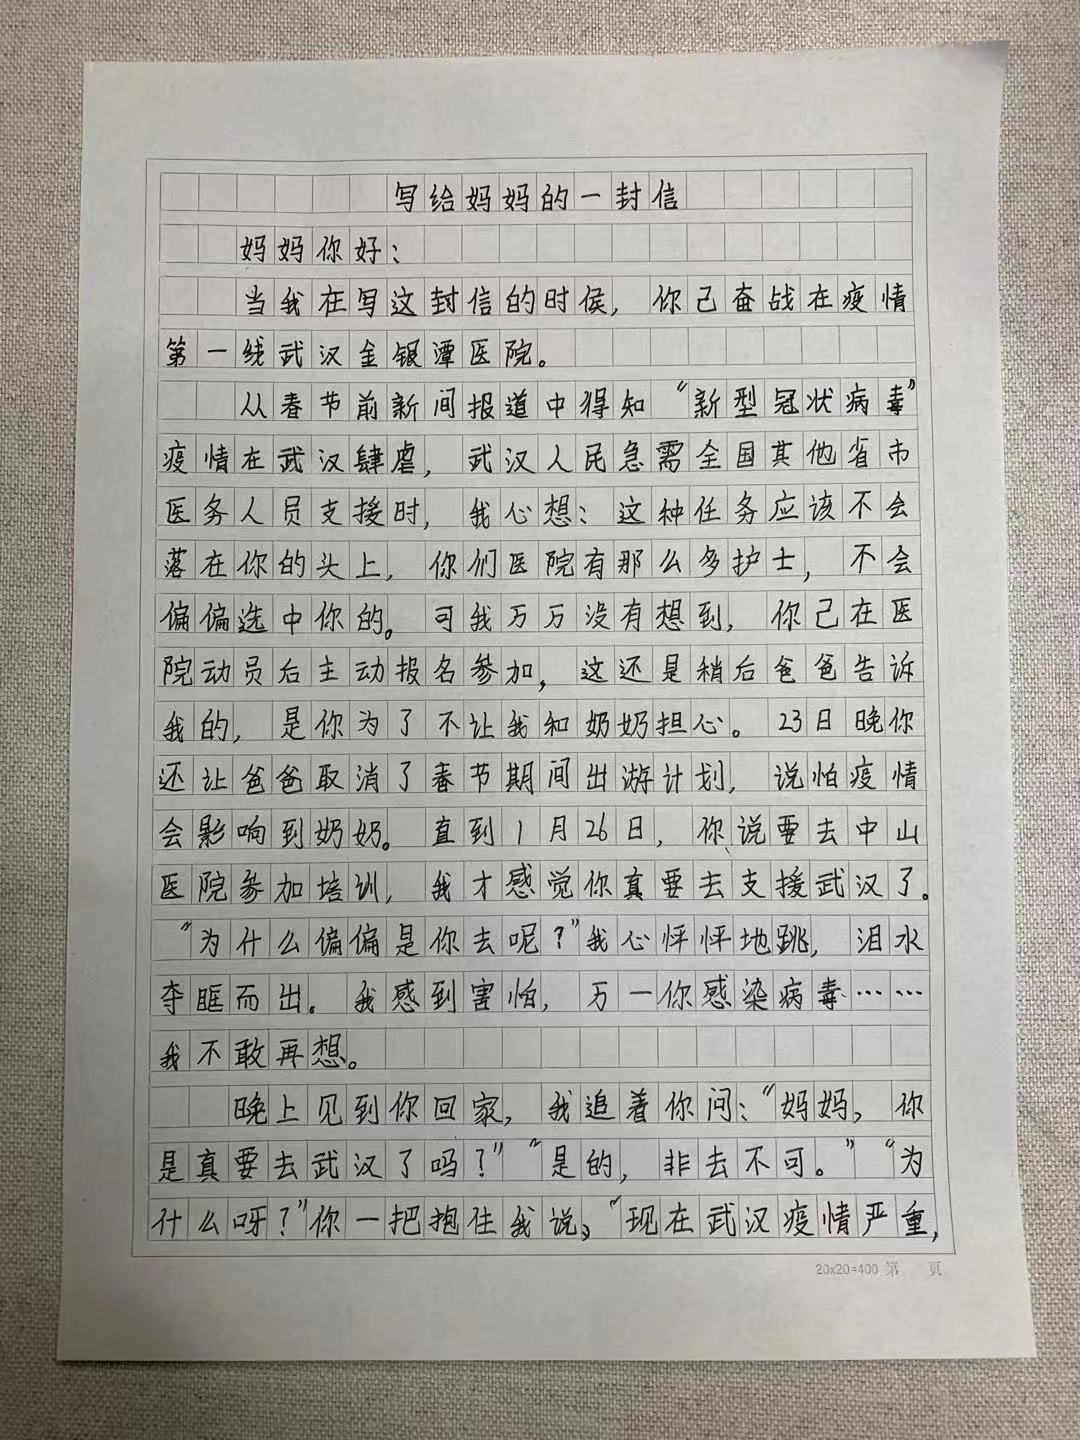 写给妈妈的一封信
妈妈你好：
当我在写这封信的时侯，你己奋战在疫情
第一线武汉金银潭医院。
从春节前新间报道中得知“新型冠状病毒”
疫情在武汉肆虐，武汉人民急需全国其他省市
医务人员支援时，我心想：这种任务应该不会
落在你的头上，你们医院有那么多护士，不会
偏偏选中你的。可我万万没有想到，你己在医
院动员后主动报名参加，这还是稍后爸爸告诉
我的，是你为了不让我和奶奶担心。23日晚你
还让爸爸取消了春节期间出游计划，说怕疫情
会影响到奶奶。直到1月26日，你说要去中山
医院参加培训，我才感觉你真要去支援武汉了。
“为什么偏偏是你去呢？”我心怦怦地跳，泪水
夺眶而出。我感到害怕，万一你感染病毒……
我不敢再想。
晚上见到你回家，我追着你问：“妈妈，你
是真要去武汉了吗？”“是的，非去不可。”“为
什么呀？”你一把抱住我说，“现在武汉疫情严重，
20x20=400 第 页